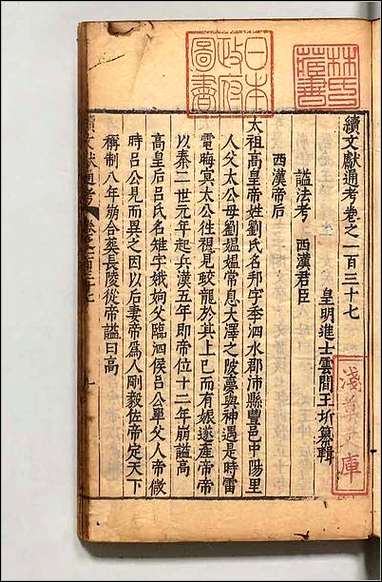 續文獻通考卷之一百三十七
皇明進士雲間王圻纂輯
諡法考　西漢君臣
西漢帝后
太祖高皇帝姓劉氏名邦字季泗水郡沛縣豐邑中陽里
人父太公母劉媼媼常息大澤之陂夢與神遇是時雷
電晦冥太公往視見蛟龍於其上已而有娠遂產帝帝
以秦二世元年起兵漢五年即帝位十二年崩諡高
高皇后呂氏名雉字娥姁父臨泗侯呂公單父人帝微
時呂公見而異之因以后妻帝為人剛毅佐帝定天下
稱制八年崩合葬長陵從帝諡曰高
續文獻通考
林氏藏書
日本政府圖書
淺草文庫